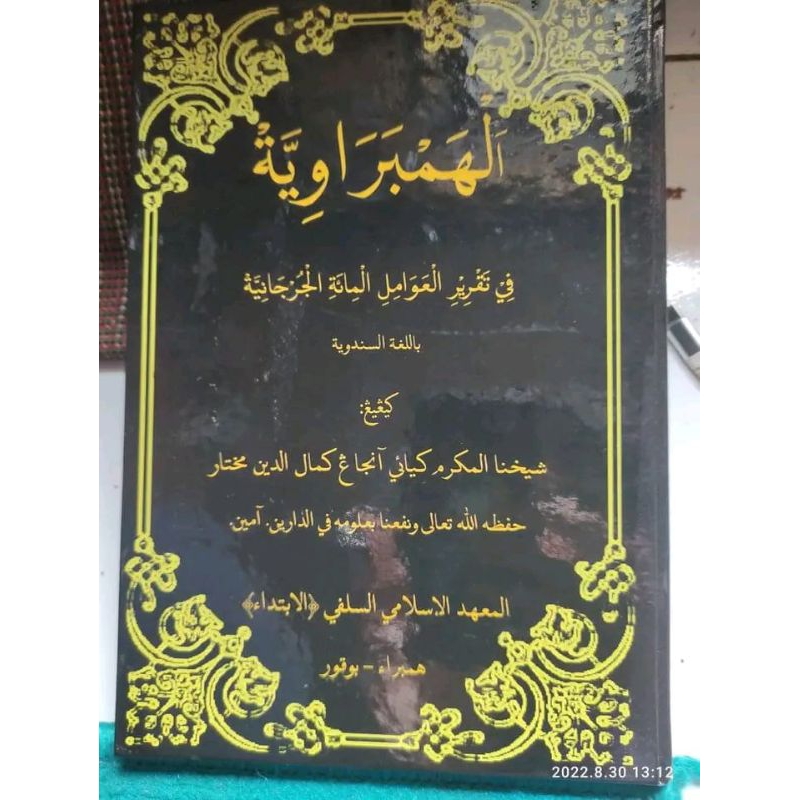 اَلْهَمْبَرَاوِيَّةْ
فِيْ تَقْرِيْرِ الْعَوَامِلِ الْمِائَةِ الْجُرْجَانِيَّةْ
باللغة السندوية
كيڠيڠ:
شيخنا المكرم كيائي آنجاڠ كمال الدين مختار
حفظه الله تعالى ونفعنا بعلومه في الدارين. آمين.
المعهد الإسلامي السلفي ﴿الابتداء﴾
همبراء - بوقور
2022.8.30 13:12